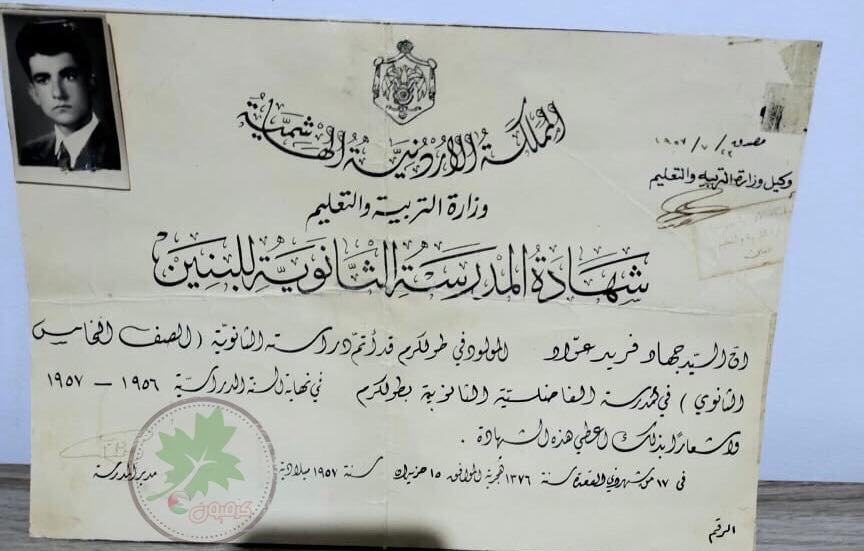 المملكة الأردنية الهاشمية
وزارة التربية والتعليم
شهادة المدرسة الثانوية للبنين
مصدق ٢٢/٧/١٩٥٧
وكيل وزارة التربية والتعليم
ان السيد جهاد فريد عواد المولود في طولكرم قد أتم دراسته الثانوية ( الصف الخامس
الثانوي ) في المدرسة الفاضلية الثانوية بطولكرم في نهاية السنة الدراسية ١٩٥٦ – ١٩٥٧
واشعارا بذلك اعطي هذه الشهادة .
في ١٧ من شهر ذي القعدة سنة ١٣٧٦ هجرية الموافق ١٥ حزيران سنة ١٩٥٧ ميلادية
مدير المدرسة
الرقم
كرمبون